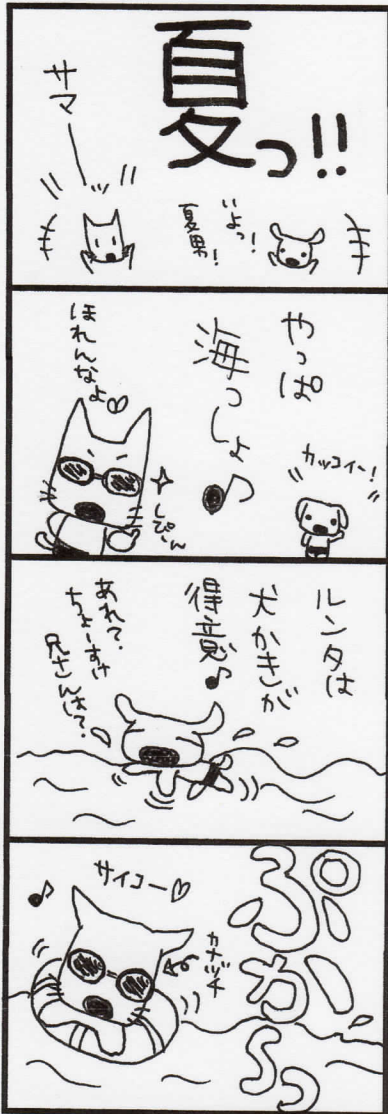 夏っ!!
サマー
いよっ!
夏男!
やっぱ
海っしょ♪
カッコイー!
ほれんなよ♡
しぴーん
ルンタは
犬かきが
得意♪
あれ?
ちょーすけ
兄さんは?
ぷかーっ
サイコー♡
カナヅチ